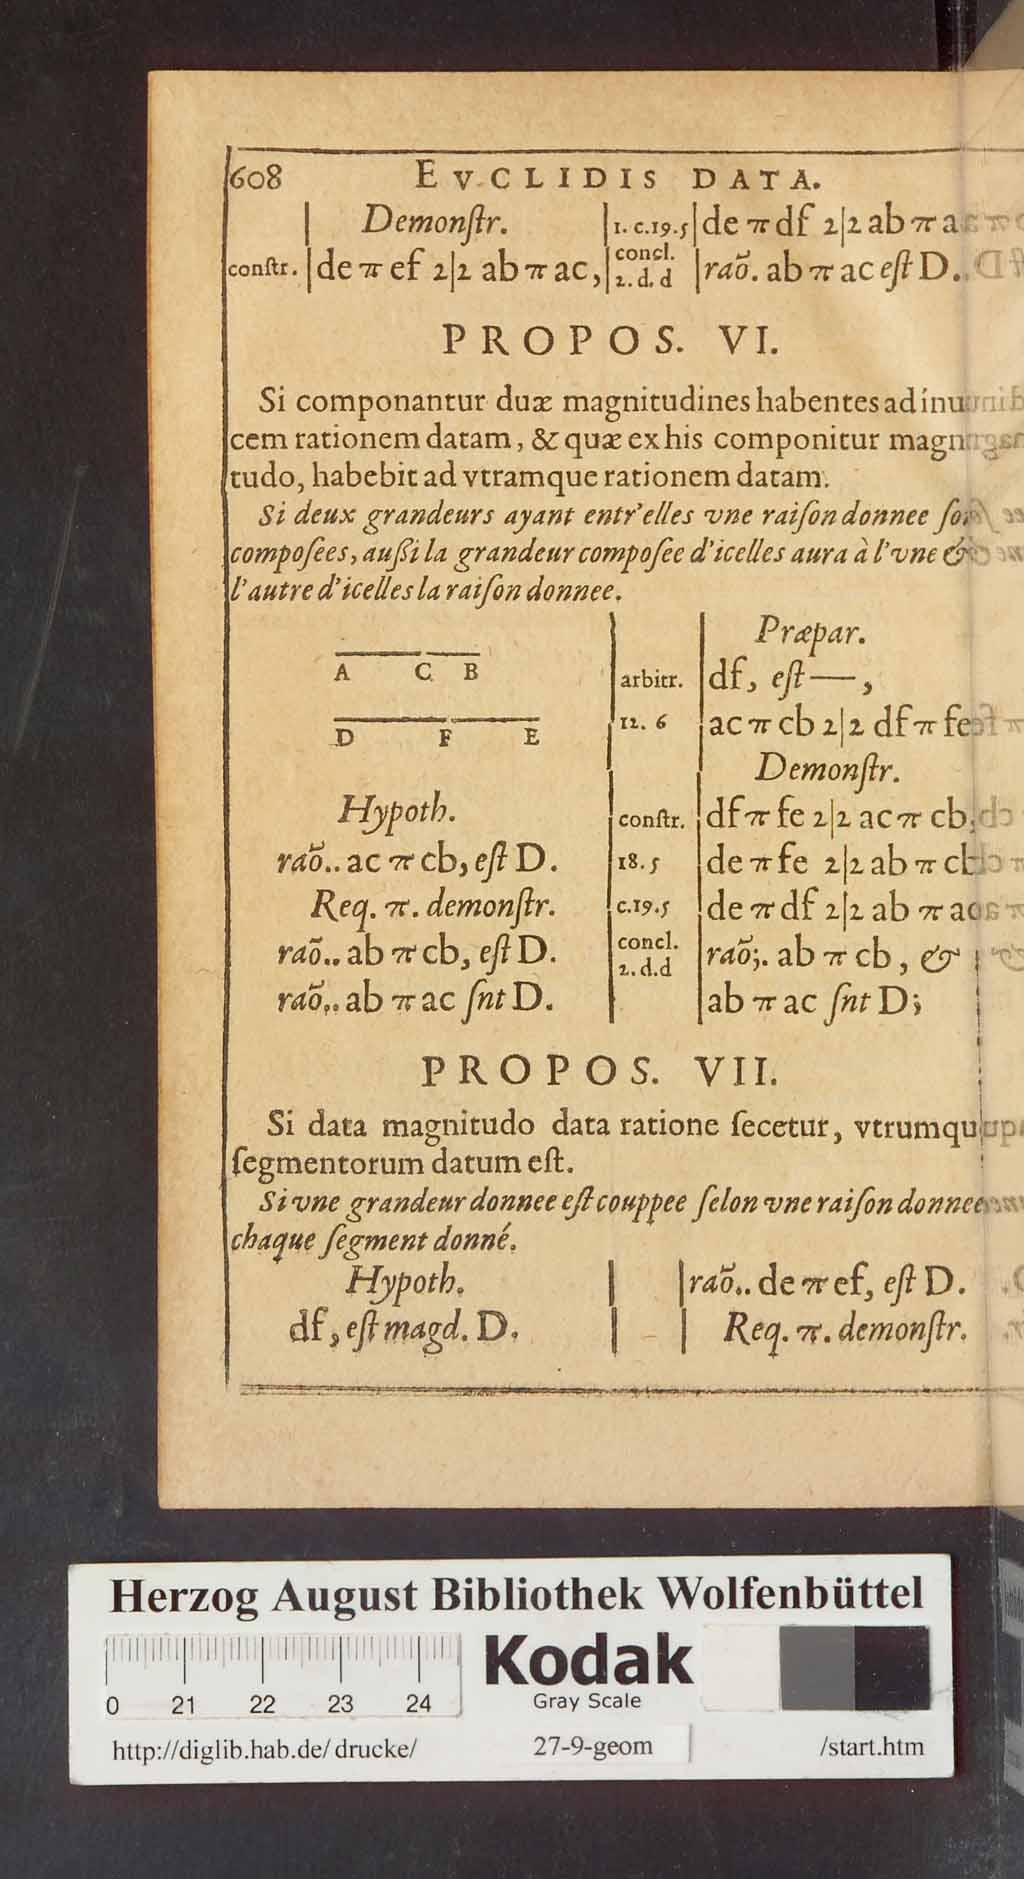 608 EVCLIDIS DATA.
Demonſtr.
conſtr. de π ef 2|2 ab π ac,
1. c.19.5 de π df 2|2 ab π a
concl. 2. d. d raõ. ab π ac eſt D.
PROPOS. VI.
Si componantur duæ magnitudines habentes ad inui
cem rationem datam, & quæ ex his componitur magni
tudo, habebit ad vtramque rationem datam.
Si deux grandeurs ayant entr'elles vne raiſon donnee
compoſees, auſſi la grandeur compoſee d'icelles aura à l'vne &
l'autre d'icelles la raiſon donnee.
A C B
D F E
Hypoth.
raõ.. ac π cb, eſt D.
Req. π. demonſtr.
raõ.. ab π cb, eſt D.
raõ.. ab π ac ſnt D.
Præpar.
arbitr. df, eſt —,
12. 6 ac π cb 2|2 df π fe
Demonſtr.
conſtr. df π fe 2|2 ac π cb,
18. 5 de π fe 2|2 ab π cb
c.19.5 de π df 2|2 ab π ac
concl. 2. d.d raõ;. ab π cb, &
ab π ac ſnt D;
PROPOS. VII.
Si data magnitudo data ratione ſecetur, vtrumqu
ſegmentorum datum eſt.
Si vne grandeur donnee eſt couppee ſelon vne raiſon donnee
chaque ſegment donné.
Hypoth.
df, eſt magd. D.
raõ.. de π ef, eſt D.
Req. π. demonſtr.
Herzog August Bibliothek Wolfenbüttel
0 21 22 23 24
Kodak
Gray Scale
http://diglib.hab.de/drucke/ 27-9-geom /start.htm